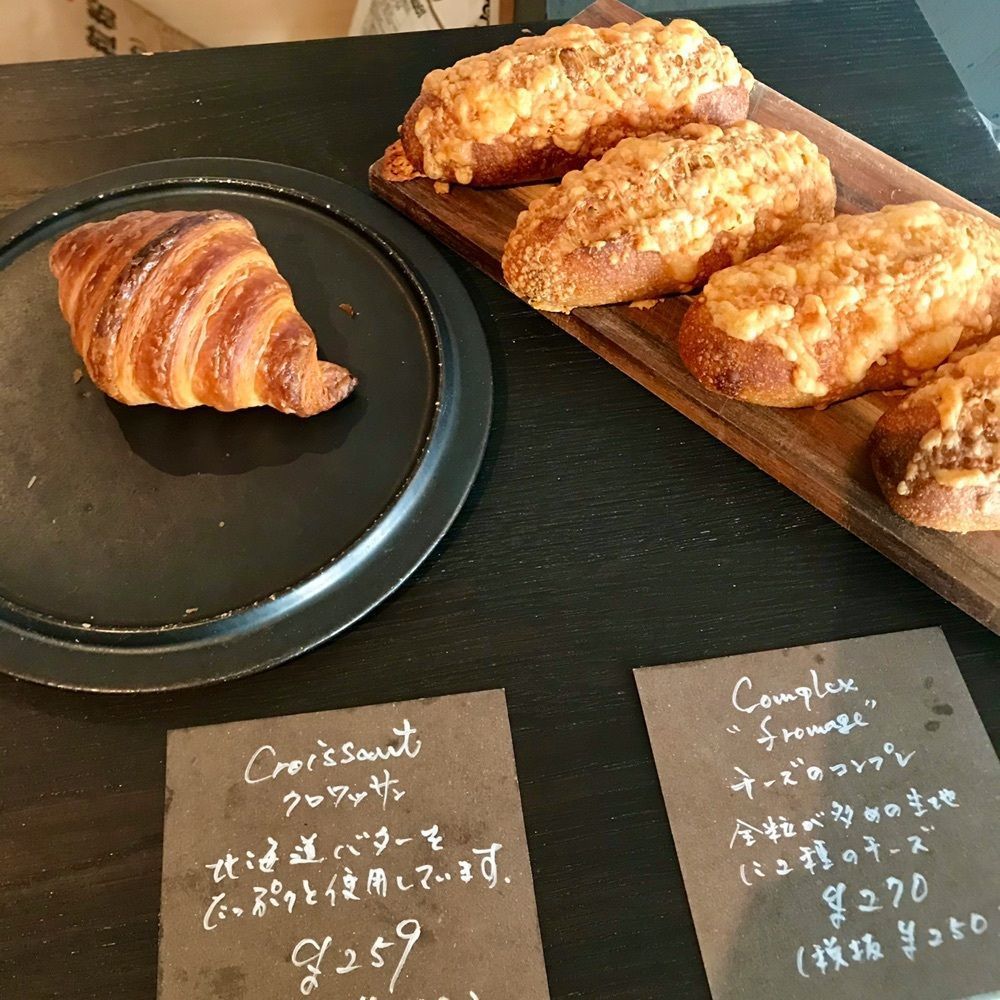 Croissant
クロワッサン
北海道バターを
たっぷりと使用しています.
¥259
Complex
"fromage"
チーズのコンプレ
全粒が多めの生地
に2種のチーズ
¥270
(税抜 ¥250